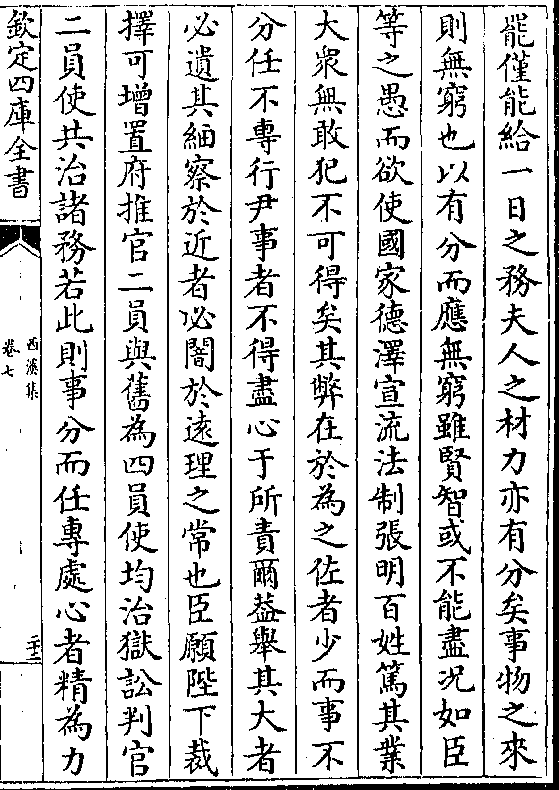 罷僅能給一日之務夫人之材力亦有分矣事物之來
則無窮也以有分而應無窮雖賢智或不能盡况如臣
等之愚而欲使國家德澤宣流法制張明百姓篤其業
大衆無敢犯不可得矣其弊在於為之佐者少而事不
分任不專行尹事者不得盡心于所責爾葢舉其大者
必遺其細察於近者必闇於逺理之常也臣願陛下裁
擇可增置府推官二員與舊為四員使均治獄訟判官
二員使共治諸務若此則事分而任專處心者精為力
欽定四庫全書
西溪集
卷七
二十二